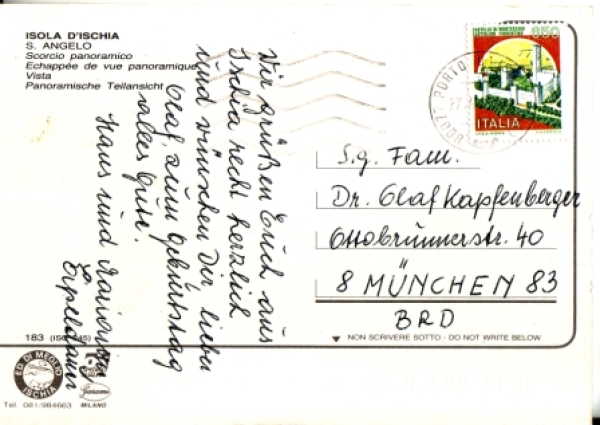 ISOLA D'ISCHIA
S. ANGELO
Scorcio panoramico
Echappée de vue panoramique
Vista
Panoramische Teilansicht
Wir grüßen Euch aus
Ischia recht herzlich
und wünschen Dir, lieber
Olaf, zum Geburtstag
alles Gute.
Hans und
850
ITALIA
PORTO
S.g. Fam.
Dr. Olaf Kapfenberger
Ottobrunnerstr. 40
8 MÜNCHEN 83
BRD
183
▼ NON SCRIVERE SOTTO - DO NOT WRITE BELOW
ED. DI MEGLIO
ISCHIA
Garami
MILANO
Tel. 081/984663